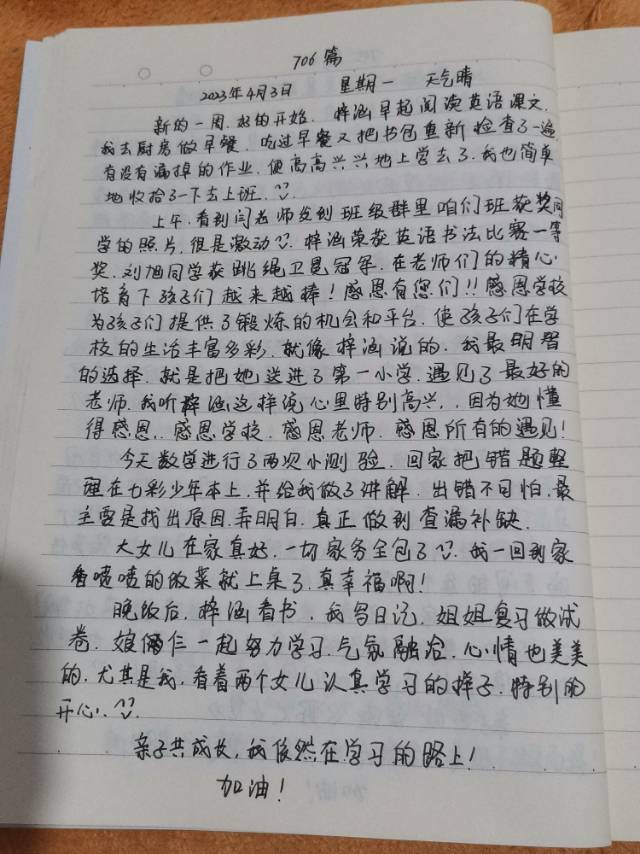 706篇
2023年4月3日 星期一 天气晴
新的一周.好的开始. 梓涵早起阅读英语课文.
我去厨房做早餐. 吃过早餐又把书包重新检查了一遍
有没有漏掉的作业. 便高高兴兴地上学去了.我也简单
地收拾了一下去上班.
上午.看到闫老师发到班级群里咱们班获奖同
学的照片.很是激动 梓涵荣获英语书法比赛一等
奖.刘旭同学获跳绳卫冕冠军.在老师们的精心
培育下孩子们越来越棒!感恩有您们!!感恩学校
为孩子们提供了锻炼的机会和平台.使孩子们在学
校的生活丰富多彩.就像梓涵说的.妈最明智
的选择.就是把她送进了第一小学.遇见了最好的
老师.我听梓涵这样说心里特别高兴..因为她懂
得感恩..感恩学校.感恩老师.感恩所有的遇见!
今天数学进行了两次小测验.回家把错题整
理在七彩少年本上.并给我做了讲解.出错不可怕.最
主要是找出原因.弄明白.真正做到查漏补缺.
大女儿在家真好.一切家务全包了 我一回到家
香喷喷的饭菜就上桌了.真幸福啊!
晚饭后.梓涵看书.我写日记.姐姐复习做试
卷.娘俩仨一起努力学习.气氛融洽.心情也美美
的.尤其是我.看着两个女儿认真学习的样子.特别的
开心.
亲子共成长,我依然在学习的路上!
加油!